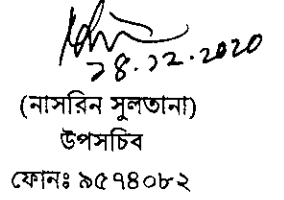 ২৪.১২.২০২০
(নাসরিন সুলতানা)
উপসচিব
ফোনঃ ৯৫৭৪০৮২